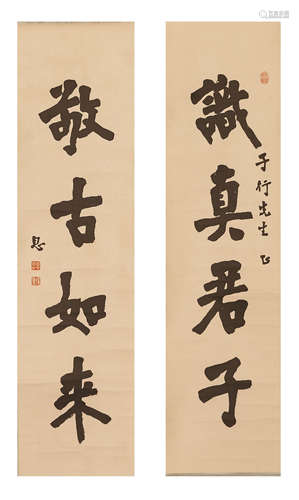 識真君子
子行先生 正
敬古如来